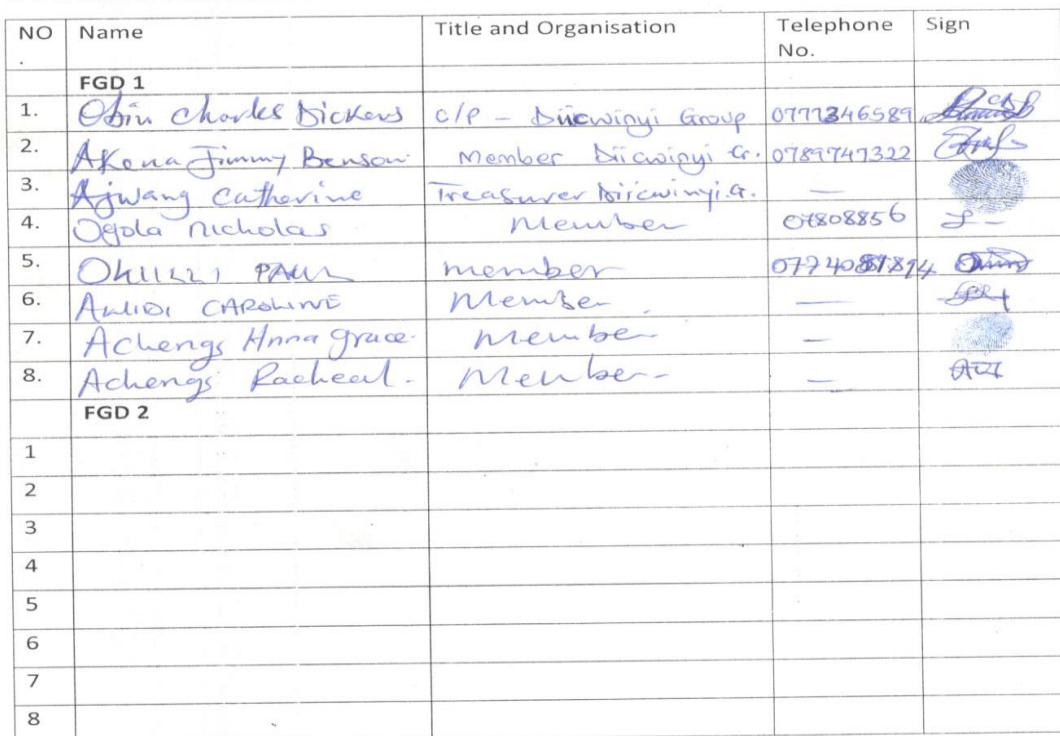 NO Name Title and Organisation Telephone Sign
. No.
FGD 1
1. Obin Charles Dickens c/p - Diicwinyi Group 0777346589
2. Akena Jimmy Benson Member Diicwinyi G. 0789747322
3. Ajwang Catherine Treasurer Diicwinyi.G. —
4. Ogola Nicholas Member 07808856
5. PAUL member
6. CAROLINE Member —
7. Achengs Anna grace. Member —
8. Achengs Racheal. Member —
FGD 2
1
2
3
4
5
6
7
8